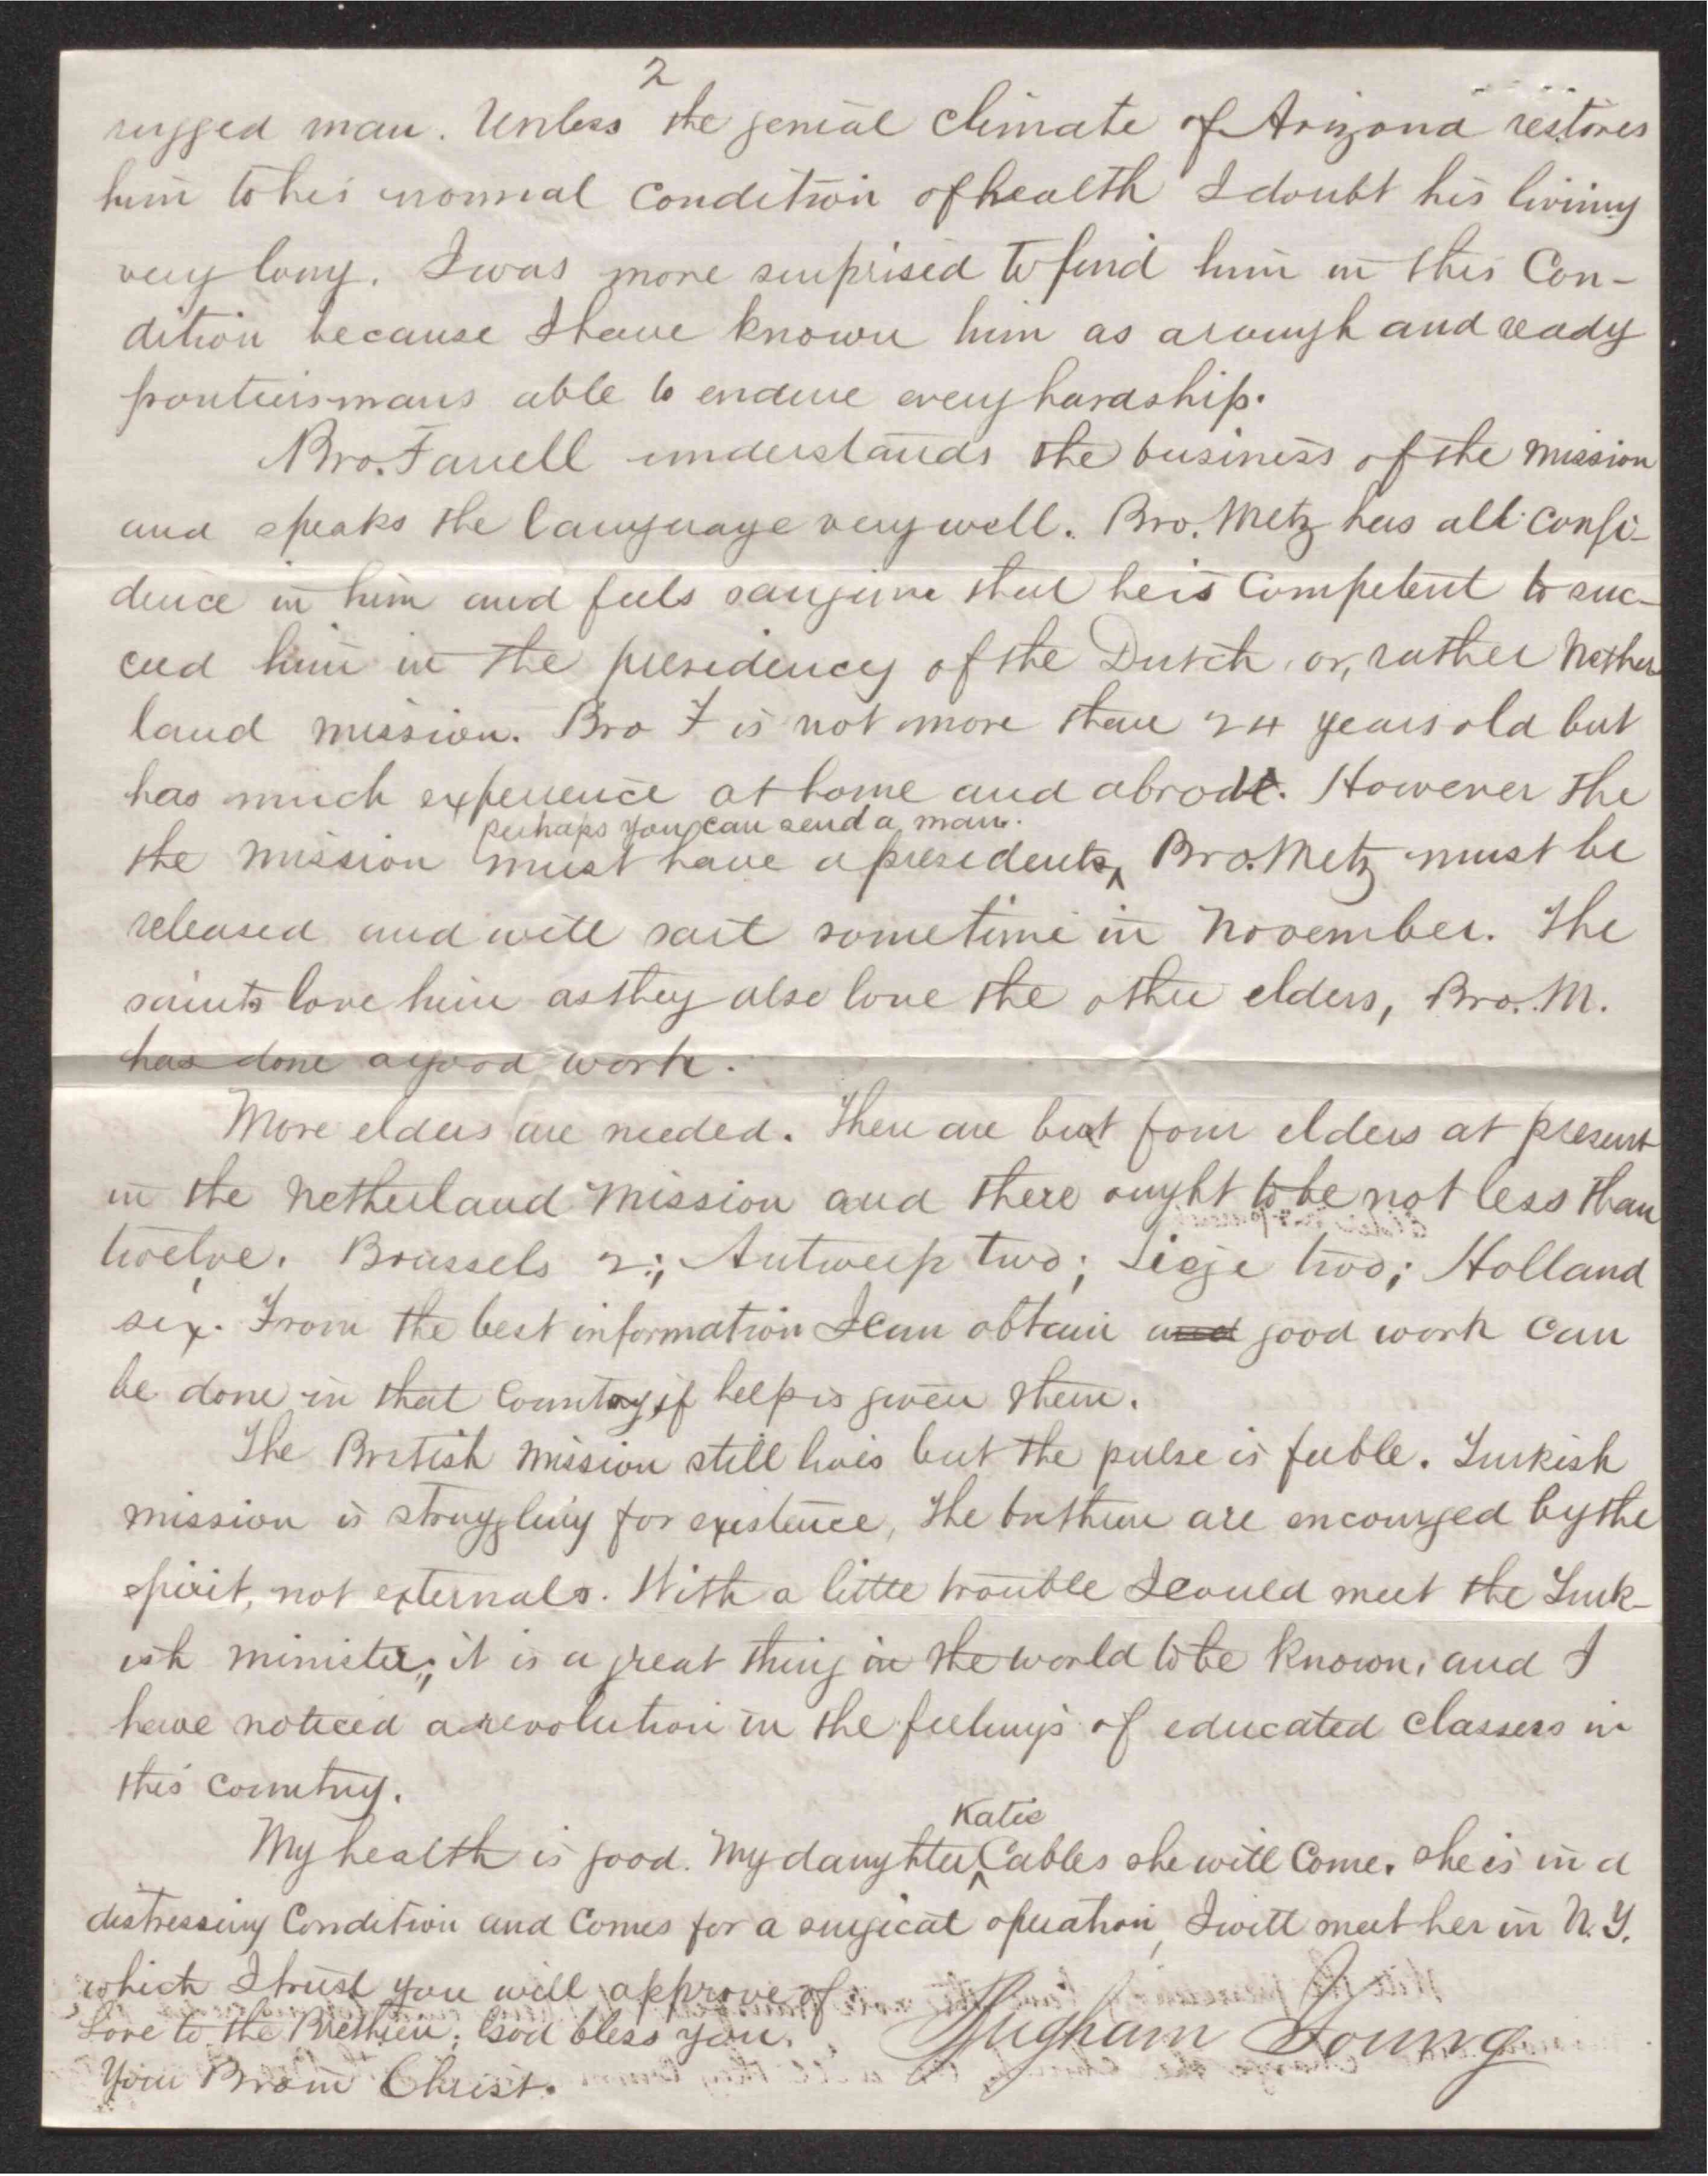 2
rugged man. Unless the genial climate of Arizona restores
him to his normal condition of health I doubt his living
very long. I was more surprised to find him in this Con-
dition because I have known him as a rough and ready
frontiersmans able to endure every hardship.
Bro. Farrell understands the business of the mission
and speaks the language very well. Bro. Metz has all confi-
dence in him and feels sanguine that he is Competent to suc-
ceed him in the presidency of the Dutch or, rather Nether
land mission. Bro F is not more than 24 years old but
has much experience at home and abroad. However the
perhaps you can send a man.
the mission must have a president, Bro. Metz must be
released and will sail sometime in November. The
saints love him as they also love the other elders, Bro. M.
has done a good work.
More elders are needed. There are but four elders at present
in the Netherland Mission and there ought to be not less than
twelve. Brussels 2; Antwerp two; Liege two; Holland
six. From the best information I can obtain and good work can
be done in that Country if help is given them.
The British Mission still lives but the pulse is feeble. Turkish
mission is struggling for existence, the brethren are encouraged by the
spirit, not externals. With a little trouble I could meet the Turk-
ish minister; it is a great thing in the world to be known, and I
have noticed a revolution in the feelings of educated classes in
this country.
Katie
My health is good. My daughter Cables she will Come. she is in a
distressing Condition and Comes for a surgical operation, I will meet her in N.Y.
which I trust you will approve of
Love to the Brethren. God bless you.
Your Bro in Christ.
Brigham Young